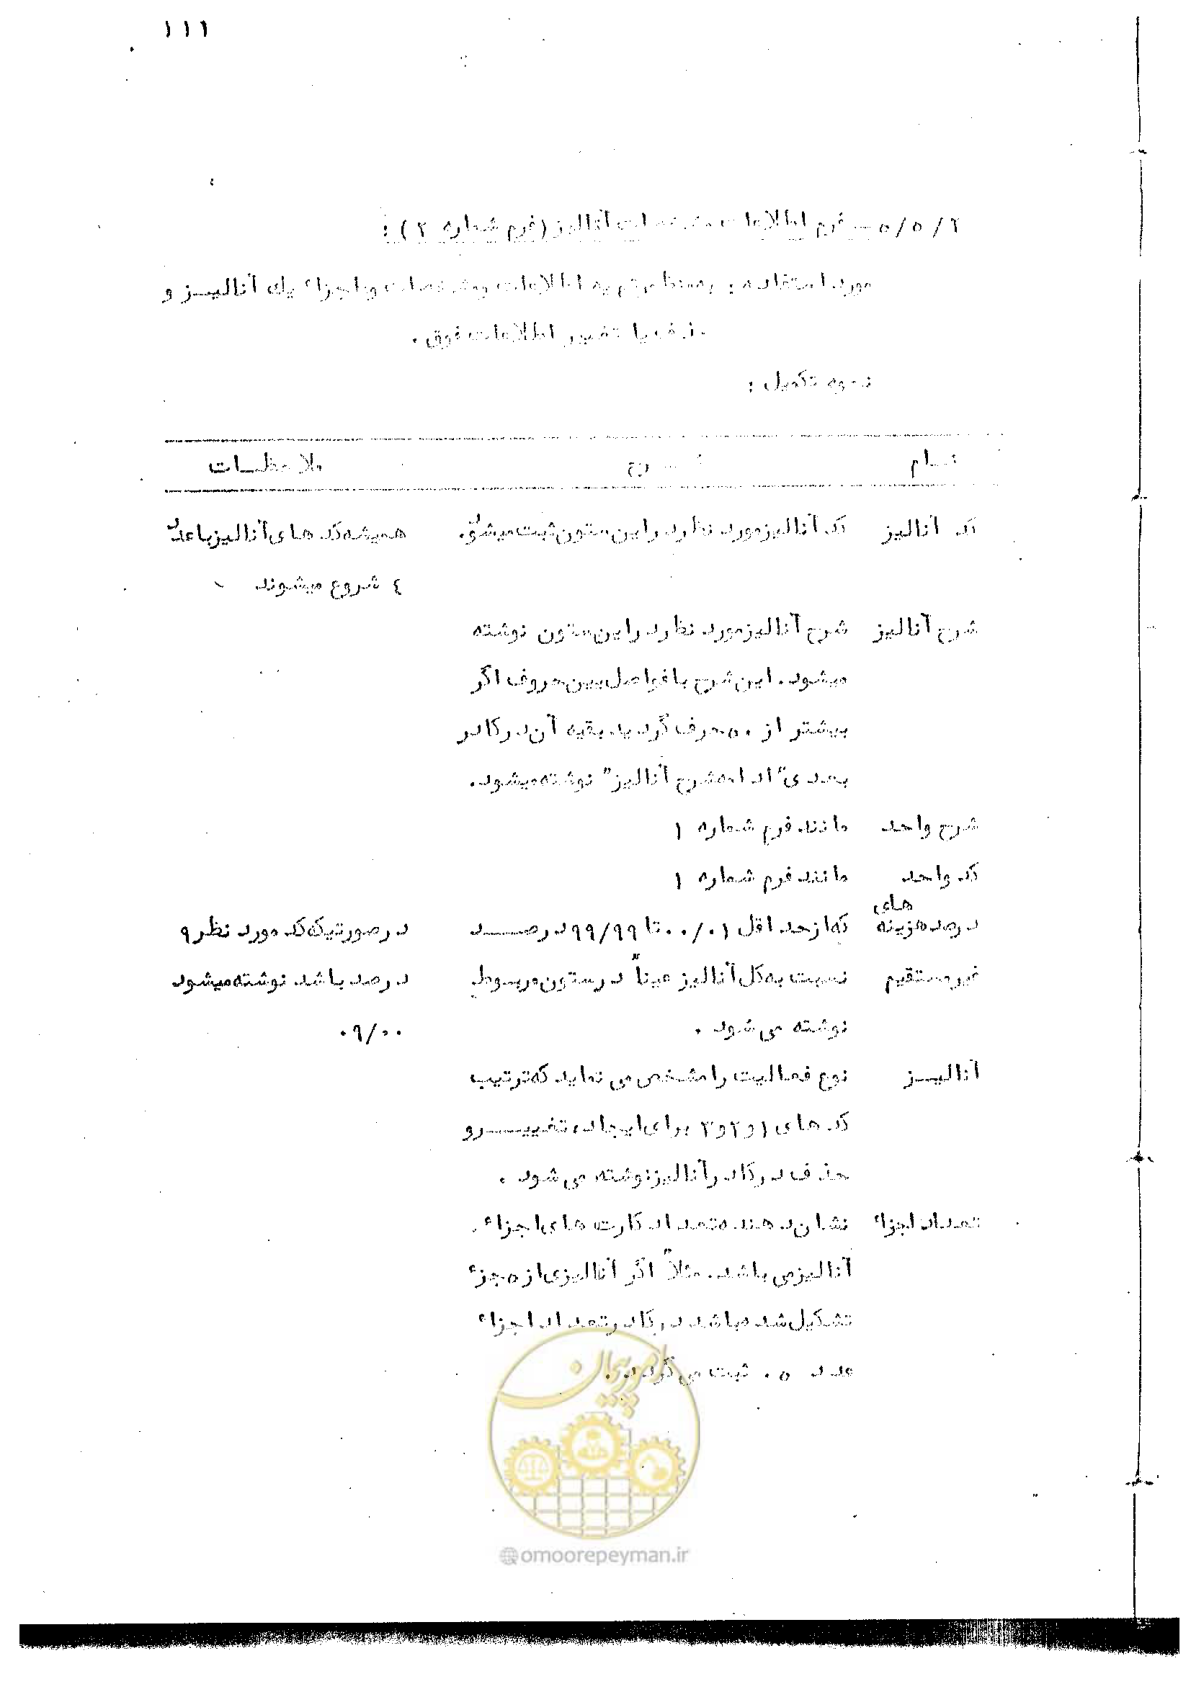 ۱۱۱
۵/۵/۲ - فرم اطلاعات مشخصات آنالیز (فرم شماره ۲) :
مورد استفاده : بمنظور تهیه اطلاعات مشخصات و اجزاء یك آنالیـز و
حذف یا تغییر اطلاعات فوق .
نحوه تکمیل :
نـام شـرح ملاحظـات
کد آنالیز کد آنالیز مورد نظر در این ستون ثبت میشود. همیشه کد های آنالیز با عدد
٤ شروع میشوند
شرح آنالیز شرح آنالیز مورد نظر در این ستون نوشته
میشود. این شرح با فواصل بین حروف اگر
بیشتر از ۵۰ حرف گردید بقیه آن در کادر
بعدی "ادامه شرح آنالیز" نوشته میشود.
شرح واحد مانند فرم شماره ۱
کد واحد مانند فرم شماره ۱
درصد هزینه های که از حد اقل ۰۰/۰۱ تا ۹۹/۹۹ درصـد در صورتیکه کد مورد نظر ۹
غیر مستقیم نسبت به کل آنالیز عیناً در ستون مربوط درصد باشد نوشته میشود
نوشته می شود . ۰۹/۰۰
آنالیـز نوع فعالیت را مشخص می نماید که ترتیب
کد های ۱ و ۲ و ۳ برای ایجاد، تغییـر و
حذف در کادر آنالیز نوشته می شود .
تعداد اجزاء نشان دهنده تعداد کارت های اجزاء
آنالیز می باشد. مثلاً اگر آنالیزی از ۵ جزء
تشکیل شده باشد در کادر تعداد اجزاء
عدد ۰۵ ثبت می گردد .
امور پیمان
@omoorepeyman.ir